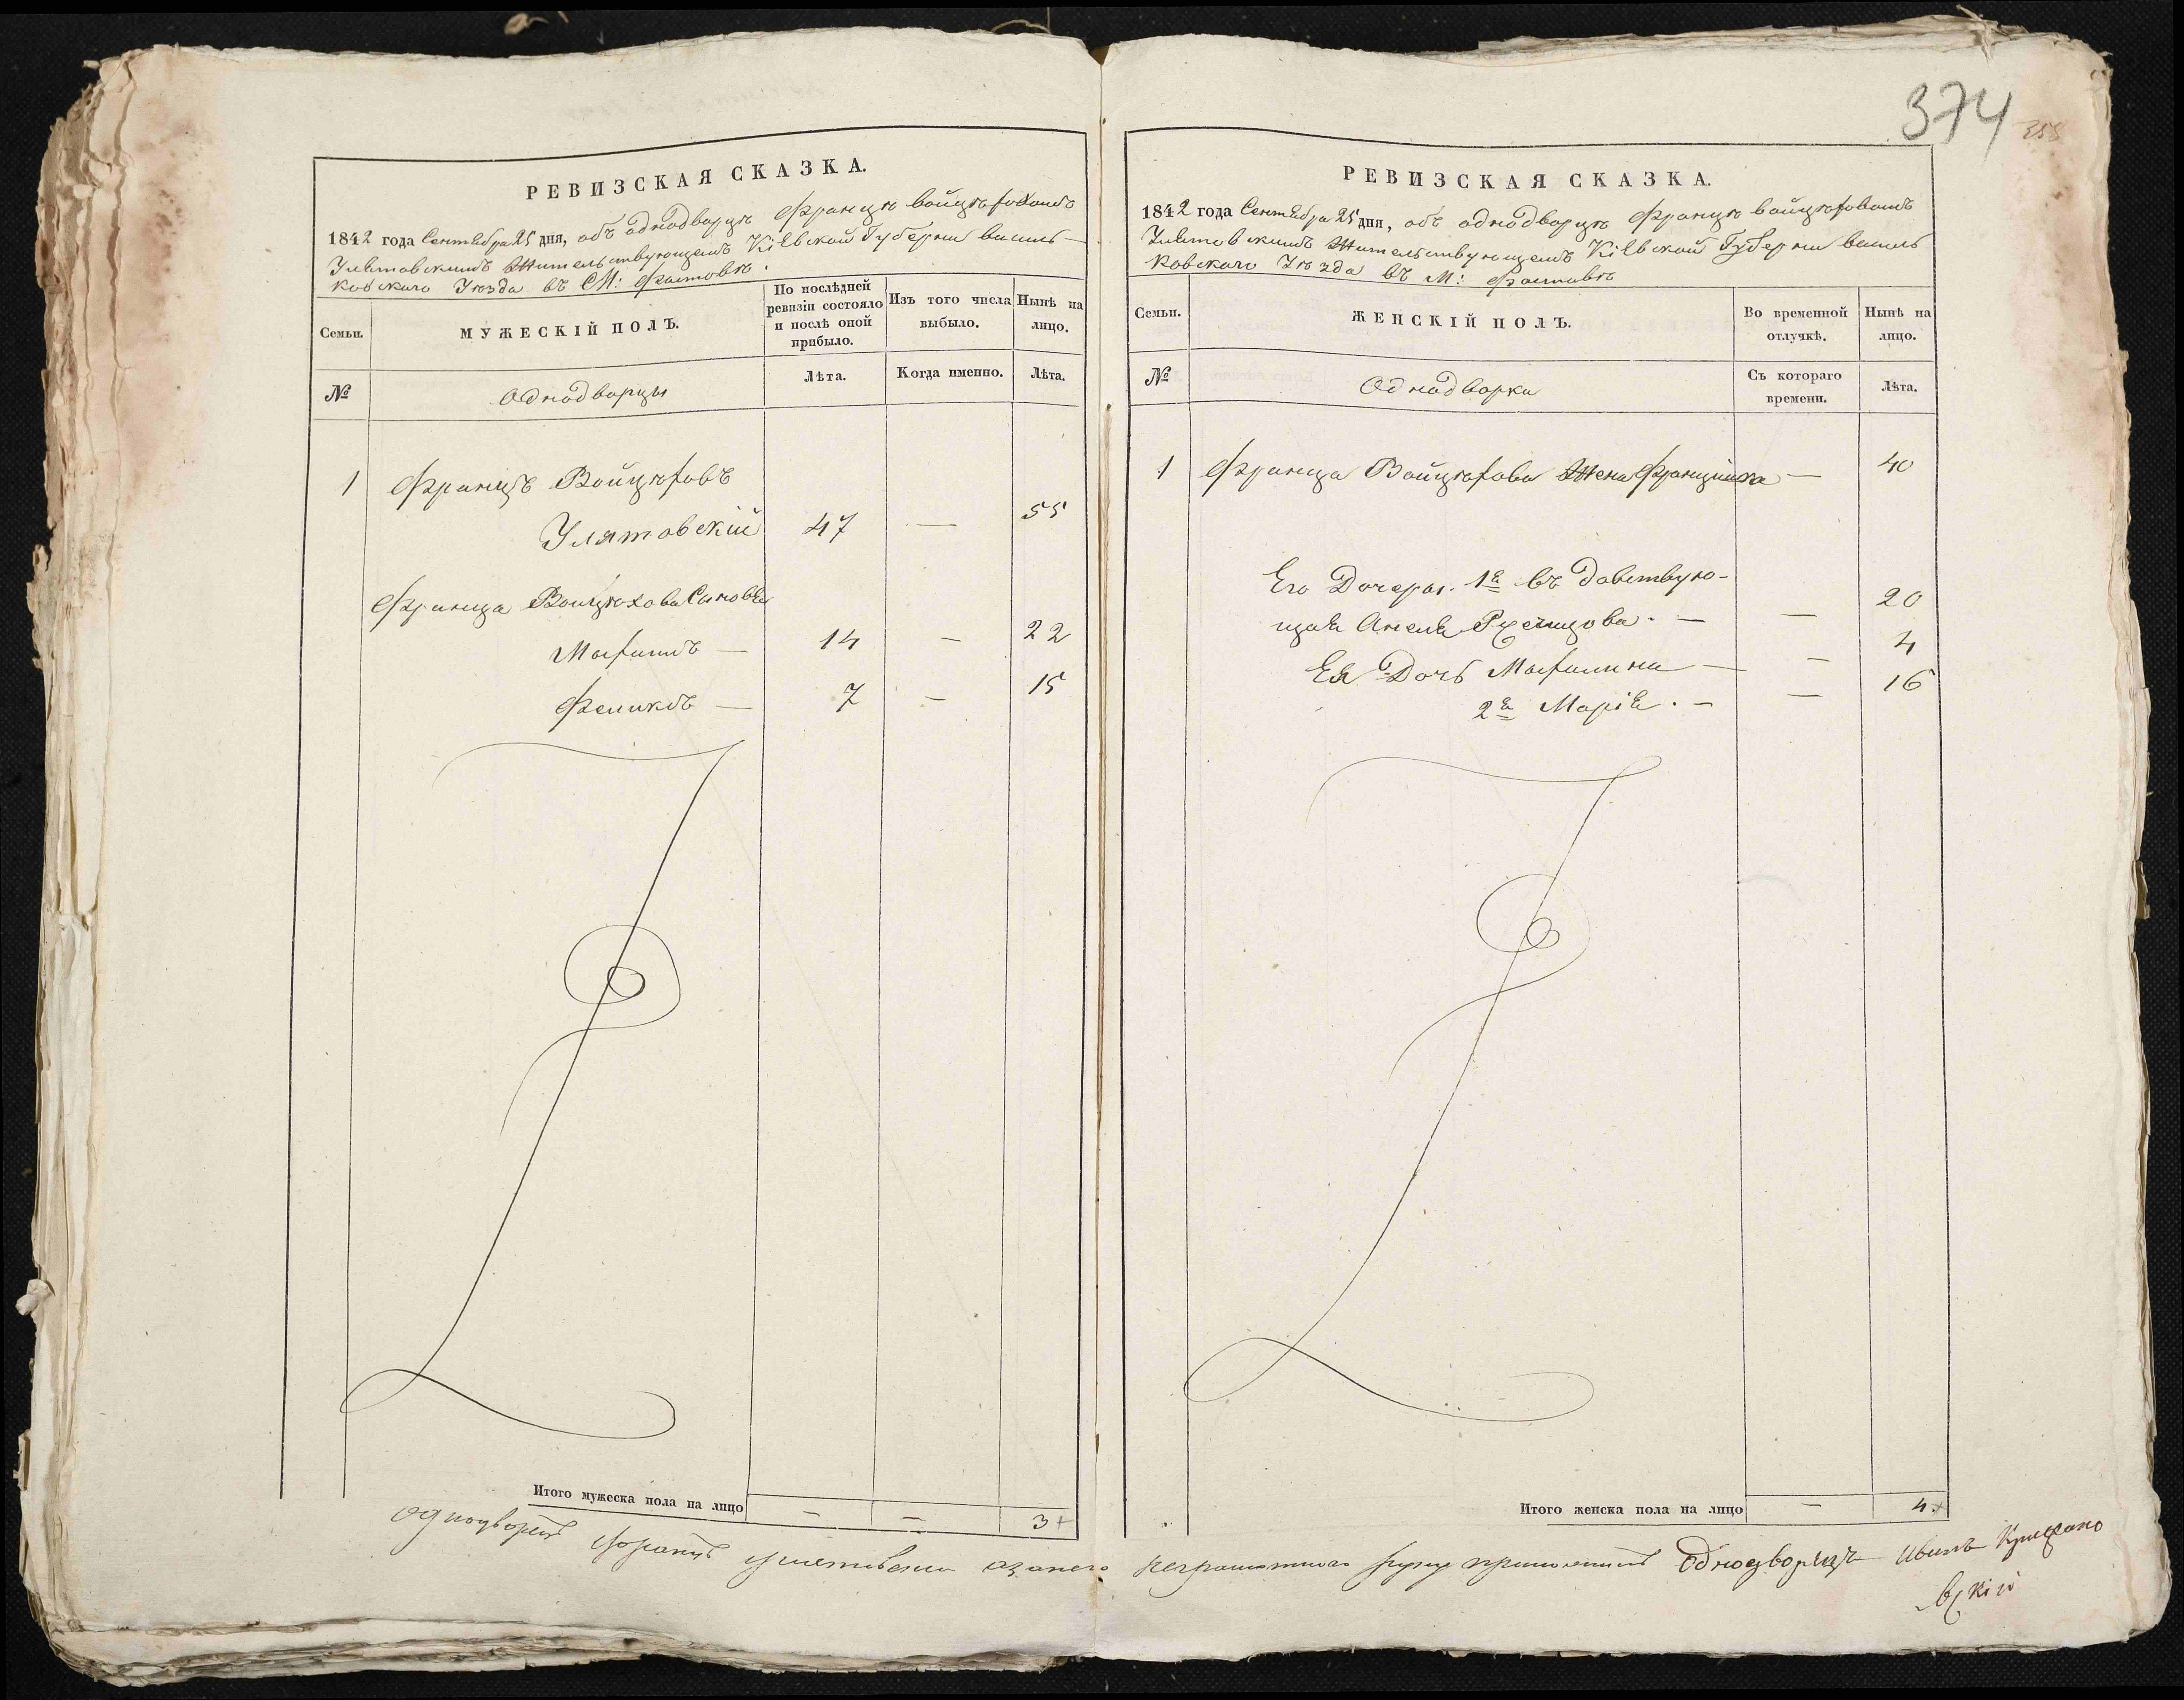 РЕВИЗСКАЯ СКАЗКА.
1842 года Сентября 25 дня, объ однодворцѣ Францѣ Войцѣховомъ
Улятовскимъ Жительствующемъ Кіевской Губерніи Василь-
ковскаго Уѣзда въ М: Фастовѣ.
Семьи.
МУЖЕСКІЙ ПОЛЪ.
По послѣдней
ревизіи состояло
и послѣ оной
прибыло.
Изъ того числа
выбыло.
Нынѣ на
лицо.
№
Однодворцы
Лѣта.
Когда именно.
Лѣта.
1 Францъ Войцѣховъ
Улятовскій 47 — 55
Франца Войцѣхова Сыновья
Мархимъ — 14 — 22
Феликсъ — 7 — 15
Итого мужеска пола на лицо — — 3
однодворецъ Францъ Улятовски а занего
374
353
РЕВИЗСКАЯ СКАЗКА.
1842 года Сентября 25 дня, объ однодворцѣ Францѣ Войцѣховомъ
Улятовскимъ Жительствующемъ Кіевской Губерніи Василь
ковскаго Уѣзда въ М: Фастовѣ
Семьи.
ЖЕНСКІЙ ПОЛЪ.
Во временной
отлучкѣ.
Нынѣ на
лицо.
№
Однодворки
Съ котораго
времени.
Лѣта.
1 Франца Войцѣхова Жена Францишка — 40
Его Дочеры. 1я въдовствую-
щая Анеля — — 20
Ея Дочь — — 4
2я Марія. — — 16
Итого женска пола на лицо — 4
неграмотнаго руку приложилъ Однодворецъ Иванъ
вскій